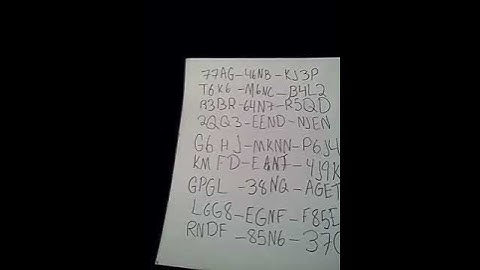 77AG-46NB-KJ3P
T6K6-M6NC-B4L2
A3BR-64N7-R5QD
2QQ3-EEND-NJEN
G6HJ-MKNN-P6J4
KMFD-EANT-4J9K
GPGL-38NQ-AGET
L6G8-EGNF-F85E
RNDF-85N6-37C